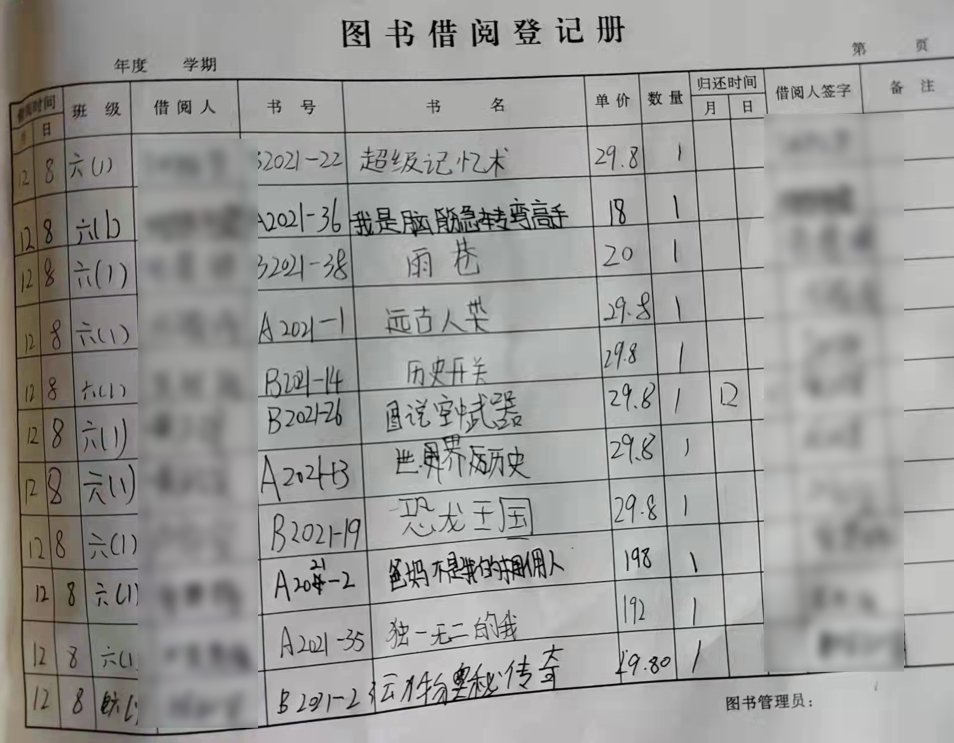 图书借阅登记册
年度 学期 第 页
借阅时间 月 日 班级 借阅人 书号 书名 单价 数量 归还时间 月 日 借阅人签字 备注
12 8 六(1) B2021-22 超级记忆术 29.8 1
12 8 六(1) A2021-36 我是脑筋急转弯高手 18 1
12 8 六(1) B2021-38 雨巷 20 1
12 8 六(1) A2021-1 远古人类 29.8 1
12 8 六(1) B2021-14 历史开关 29.8 1
12 8 六(1) B2021-26 图说空中武器 29.8 1 12
12 8 六(1) 历史 29.8 1
12 8 六(1) B2021-19 恐龙王国 29.8 1
12 8 六(1) 爸妈不是我的佣人 198 1
12 8 六(1) A2021-35 独一无二的我 192 1
12 8 B2021-2 奥秘传奇 1
图书管理员：